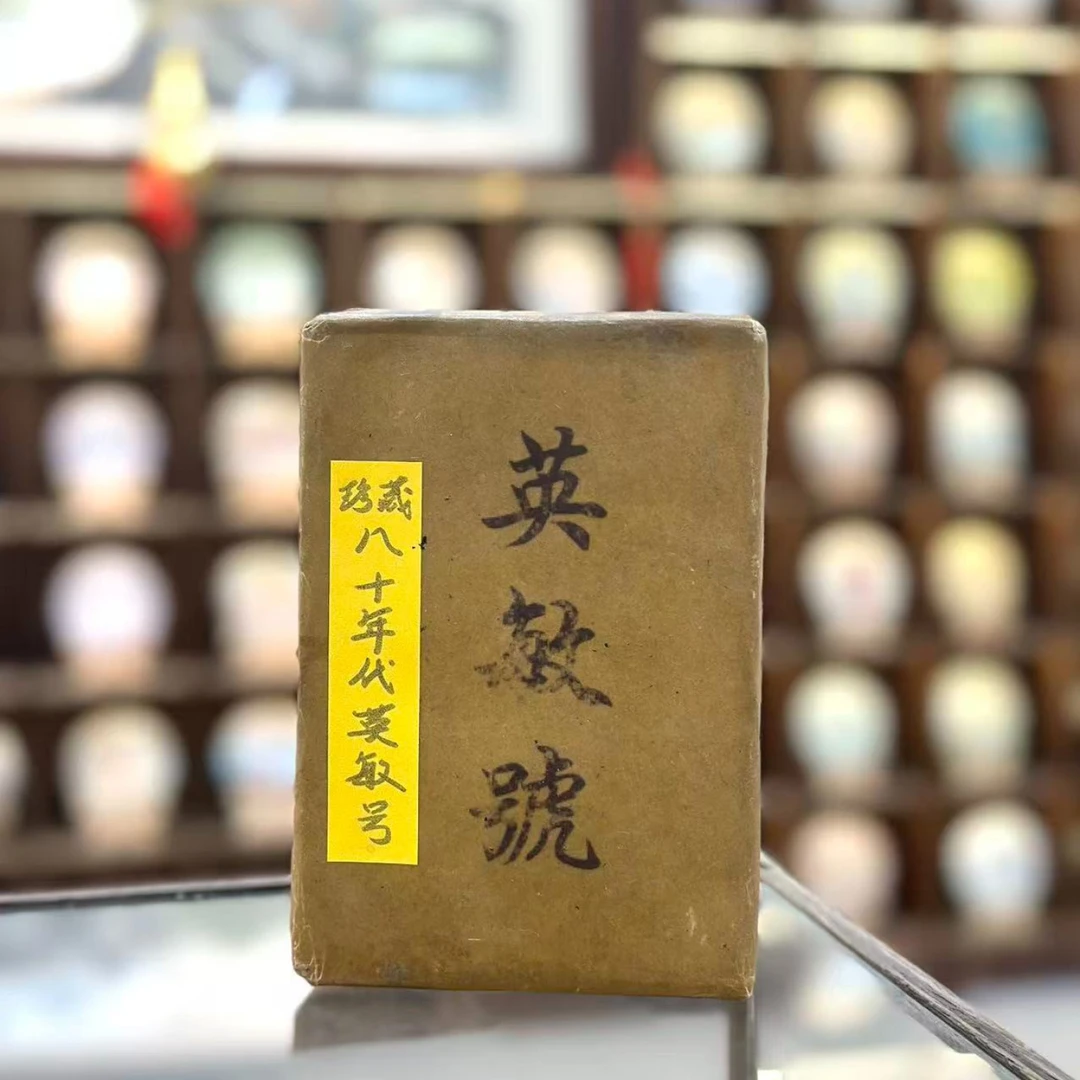 英敏號
珍藏
八十年代英敏号